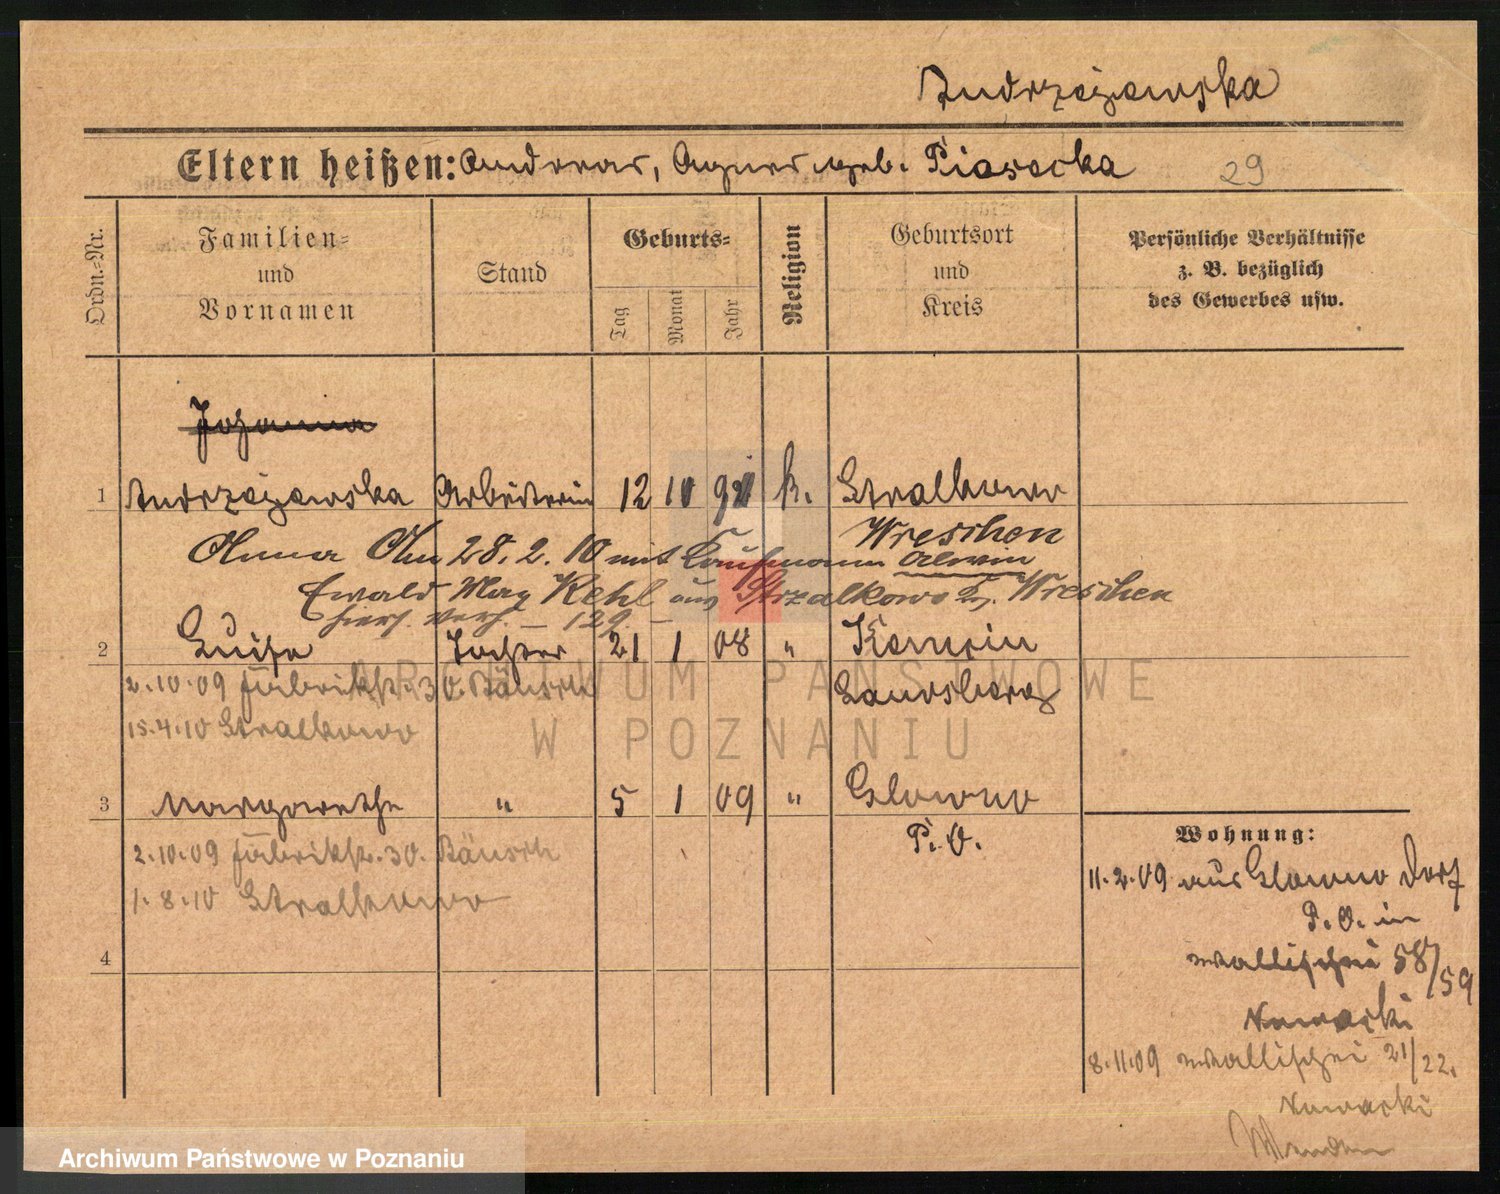 Andrzejewska
Eltern heißen: Andreas, Agnes geb. Piasecka 29
Ordn.-Nr.
Familien-
und
Vornamen
Stand
Geburts-
Tag
Monat
Jahr
Religion
Geburtsort
und
Kreis
Persönliche Verhältnisse
z. B. bezüglich
des Gewerbes usw.
Johanna
1 Andrzejewska Arbeiterin 12 10 k. Stralkowo
Wreschen
Anna Am 28. 2. 10 mit Kaufmann Alwin
Ewald Max Kehl aus Strzalkowo Kr. Wreschen
hierh. verh. – 129. –
2 Luise Tochter 21 1 08 " Kernein
2.10.09 Fabrikstr. 30. Bäusch Landsberg
15.4.10 Stralkowo
3 Margarethe " 5 1 09 " Glowno
P. O.
2.10.09 Fabrikstr. 30. Bäusch
1.8.10 Stralkowo
4
Wohnung:
11.2.09 aus Glowno Dorf
P. O. in
Wallischei 58/59
Nawacki
8.11.09 Wallischei 21/22.
Nawacki
ARCHIWUM PAŃSTWOWE
W POZNANIU
Archiwum Państwowe w Poznaniu